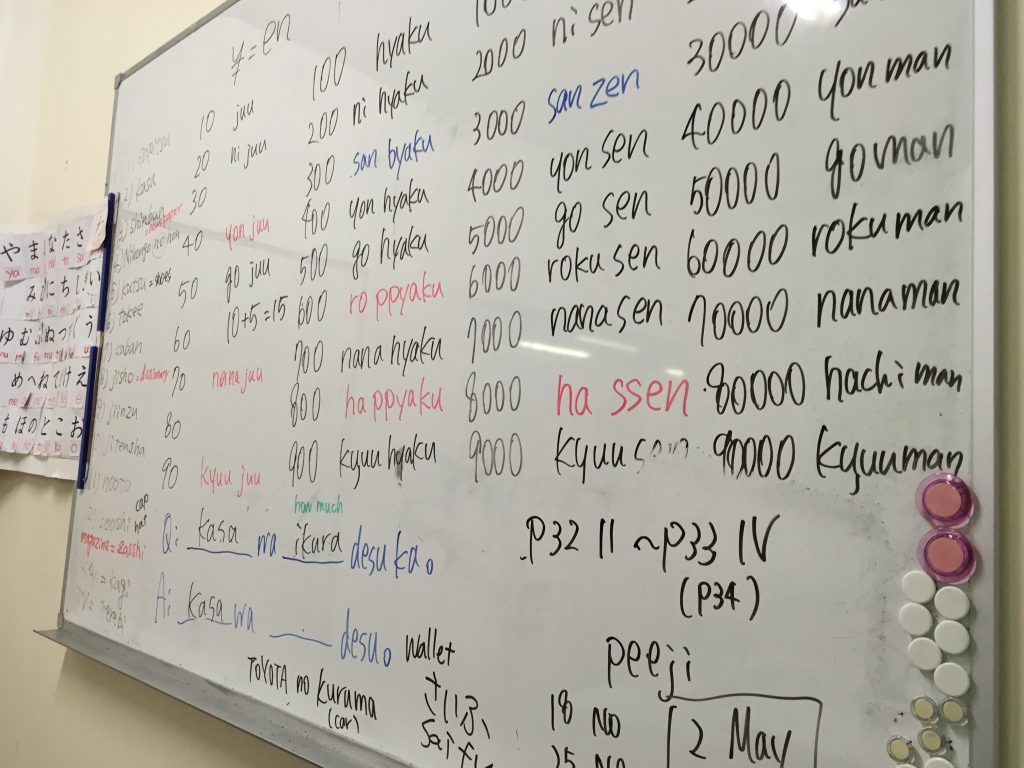 ¥ = en
100 hyaku
2000 ni sen
30000
10 juu
200 ni hyaku
3000 san zen
40000 yon man
20 ni juu
300 san byaku
4000 yon sen
50000 go man
30
400 yon hyaku
5000 go sen
60000 roku man
40 yon juu
500 go hyaku
6000 roku sen
70000 nana man
50 go juu
600 ro ppyaku
7000 nana sen
80000 hachi man
60 10+5=15
700 nana hyaku
8000 ha ssen
90000 kyuu man
70 nana juu
800 ha ppyaku
9000 kyuu
80
900 kyuu hyaku
90 kyuu juu
kasa
kaban
jisho = dictionary
booshi cap
hat
magazine = zasshi
= kagi
how much
Q: kasa wa ikura desu ka。
A: kasa wa desu。
wallet
さいふ
TOYOTA no kuruma
(car)
P32 II ~P33 IV
(P34)
peeji
18 No
25
2 May
や ま な た さ
ya ma na ta sa
み に ち し い
ゆ む ぬ つ う
め へ ね て け え
も ほ の と こ お